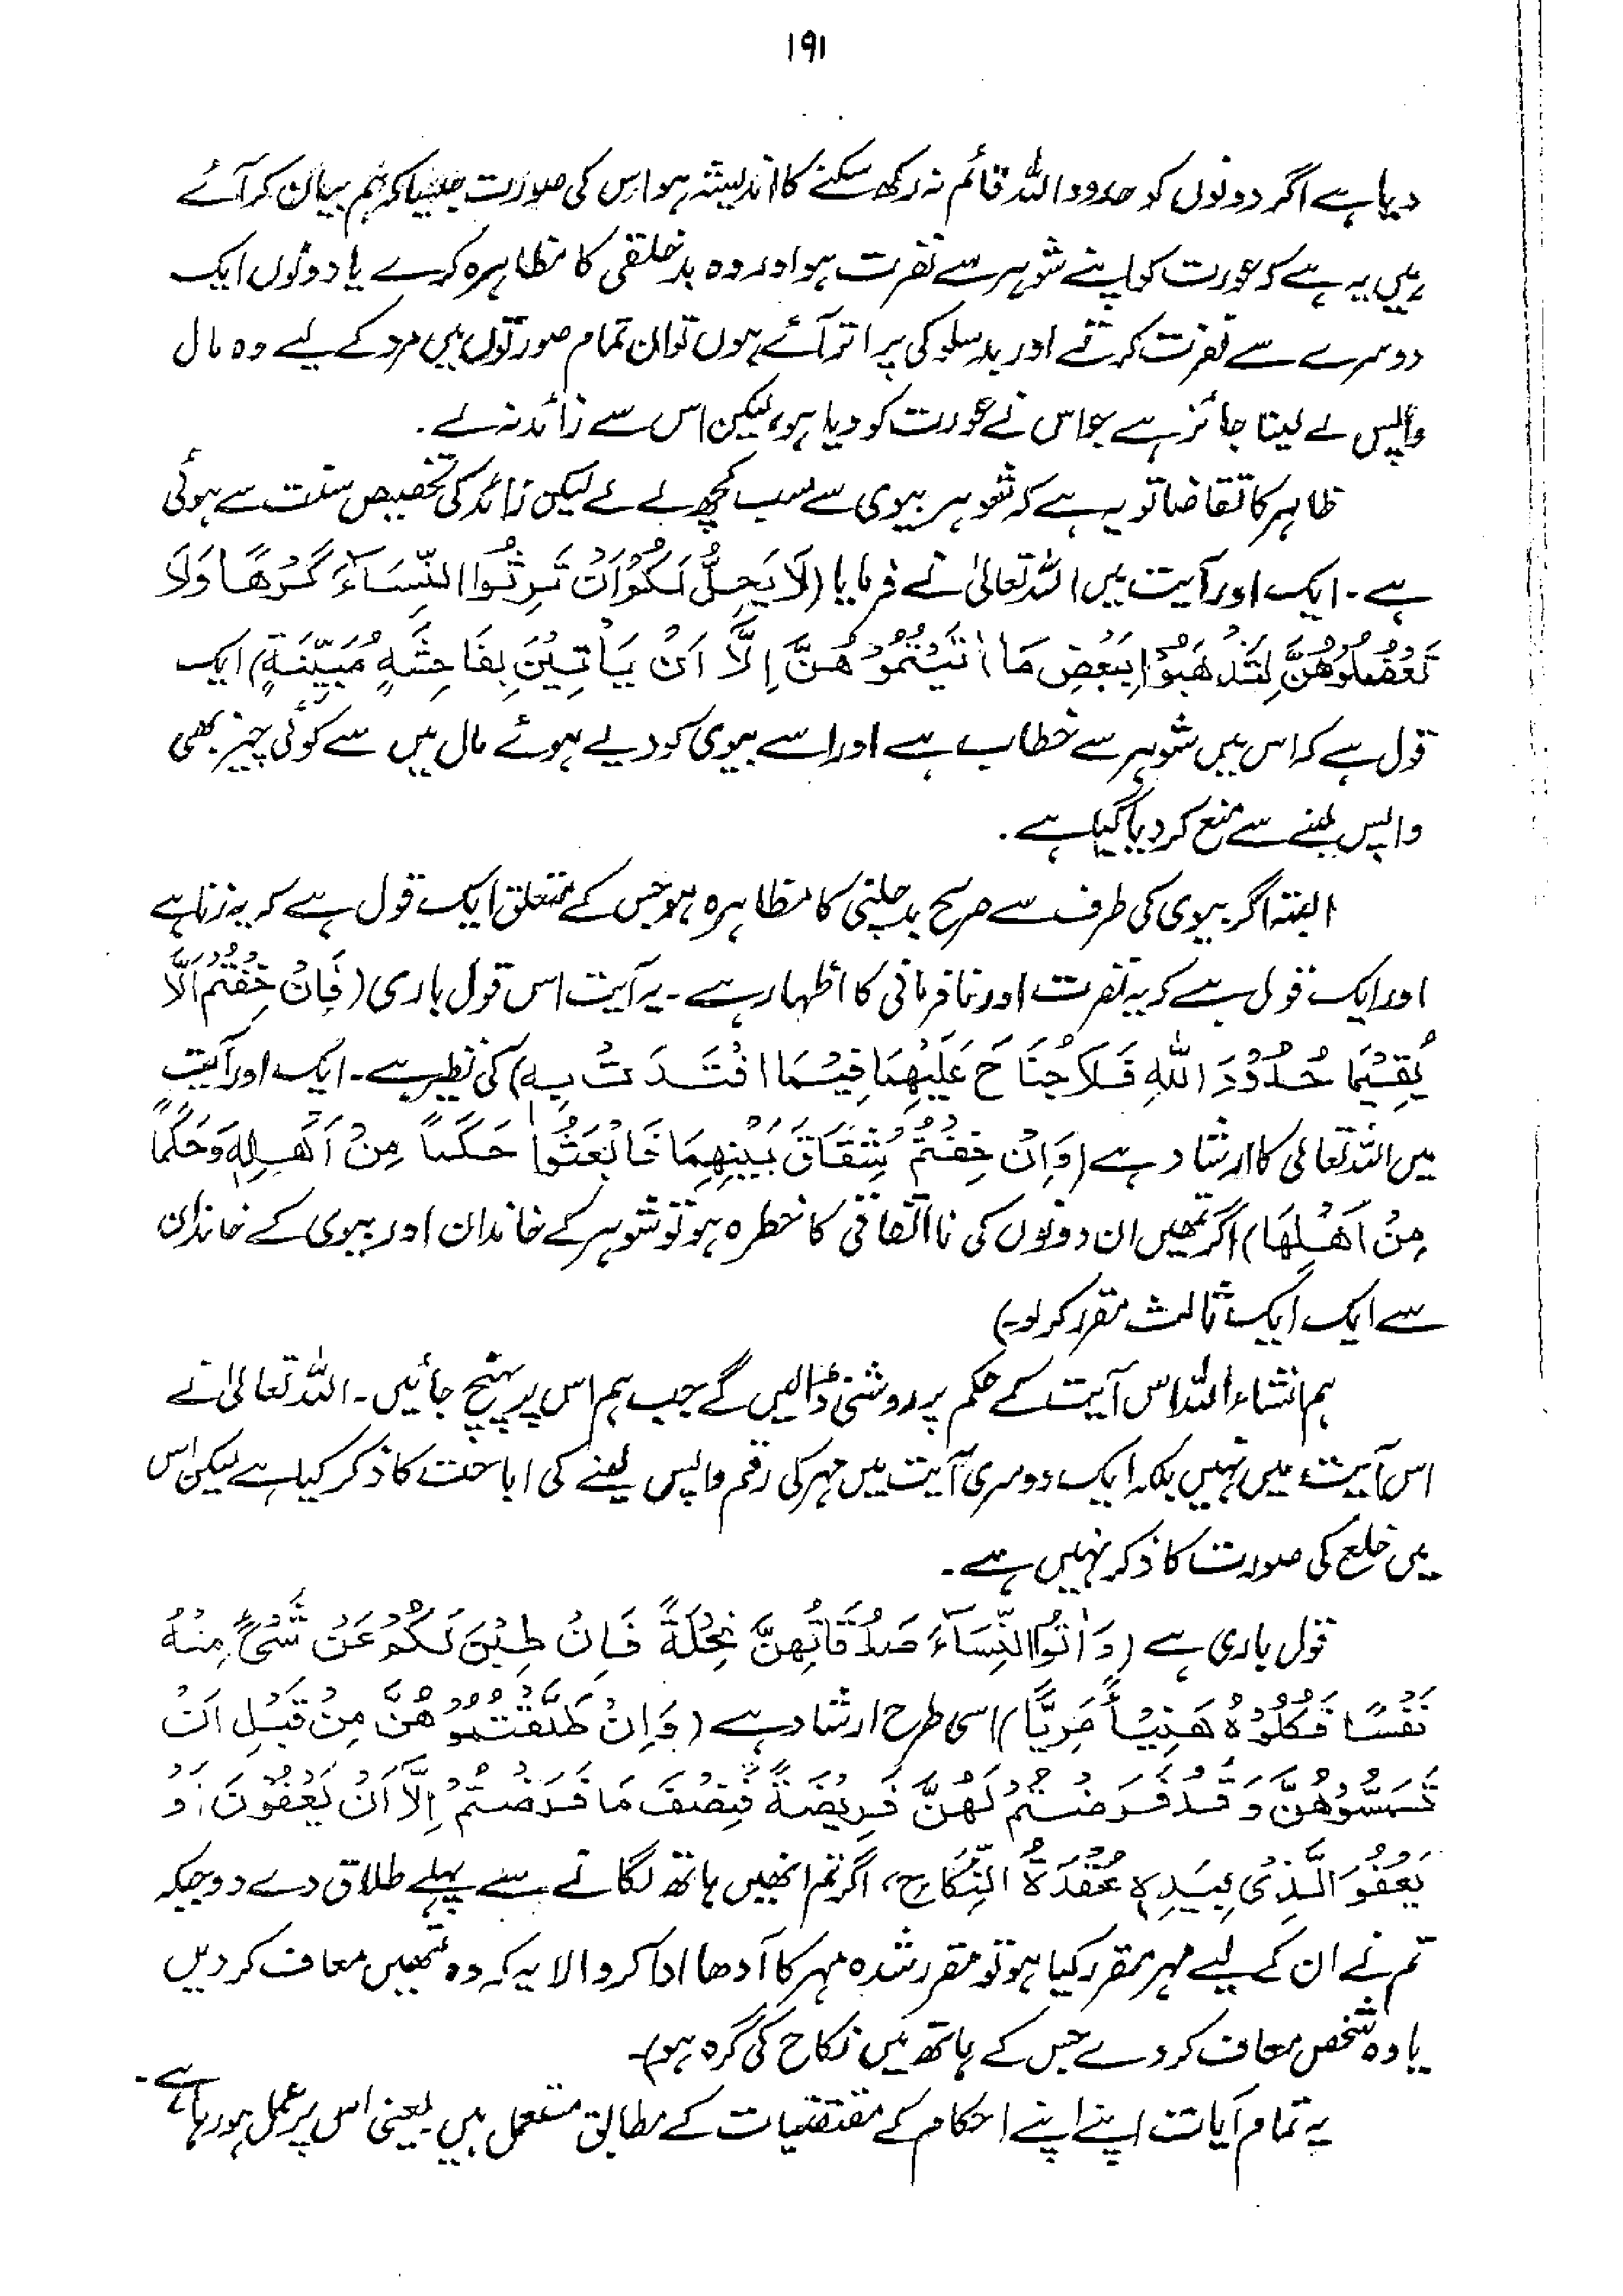 ۱۹۱
دیا ہے اگر دونوں کو حدود اللہ قائم نہ رکھ سکنے کا اندیشہ ہو اس کی صورت جیسا کہ ہم بیان کر آئے
ہیں یہ ہے کہ عورت کو اپنے شوہر سے نفرت ہو اور وہ بدخلقی کا مظاہرہ کرے یا دونوں ایک
دوسرے سے نفرت کرتے اور بدسلوکی پر اتر آئے ہوں تو ان تمام صورتوں میں مرد کے لیے وہ مال
واپس لے لینا جائز ہے جو اس نے عورت کو دیا ہو، لیکن اس سے زائد نہ لے۔
ظاہر کا تقاضا تو یہ ہے کہ شوہر بیوی سے سب کچھ لے لے لیکن زائد کی تخصیص سنت سے ہوئی
ہے۔ ایک اور آیت میں اللہ تعالیٰ نے فرمایا (لَا يَحِلُّ لَكُمْ اَنْ تَرِثُوا النِّسَآءَ كَرْهًا وَلَا
تَعْضُلُوْهُنَّ لِتَذْهَبُوْا بِبَعْضِ مَا اٰتَيْتُمُوْهُنَّ اِلَّا اَنْ يَاْتِيْنَ بِفَاحِشَةٍ مُبَيِّنَةٍ) ایک
قول ہے کہ اس میں شوہر سے خطاب ہے اور اسے بیوی کو دیے ہوئے مال میں سے کوئی چیز بھی
واپس لینے سے منع کر دیا گیا ہے۔
البتہ اگر بیوی کی طرف سے صریح بدچلنی کا مظاہرہ ہو جس کے متعلق ایک قول ہے کہ یہ زنا ہے
اور ایک قول ہے کہ یہ نفرت اور نافرمانی کا اظہار ہے۔ یہ آیت اس قول باری (فَاِنْ خِفْتُمْ اَلَّا
يُقِيْمَا حُدُوْدَ اللّٰهِ فَلَا جُنَاحَ عَلَيْهِمَا فِيْمَا افْتَدَتْ بِهٖ) کی نظیر ہے۔ ایک اور آیت
میں اللہ تعالیٰ کا ارشاد ہے (وَاِنْ خِفْتُمْ شِقَاقَ بَيْنِهِمَا فَابْعَثُوْا حَكَمًا مِنْ اَهْلِهٖ وَحَكَمًا
مِنْ اَهْلِهَا) اگر تمھیں ان دونوں کی نااتفاقی کا خطرہ ہو تو شوہر کے خاندان اور بیوی کے خاندان
سے ایک ایک ثالث مقرر کر لو۔)
ہم انشاء اللہ اس آیت کے حکم پر روشنی ڈالیں گے جب ہم اس پر پہنچ جائیں۔ اللہ تعالیٰ نے
اس آیت میں نہیں بلکہ ایک دوسری آیت میں مہر کی رقم واپس لینے کی اباحت کا ذکر کیا ہے لیکن اس
میں خلع کی صورت کا ذکر نہیں ہے۔
قول باری ہے (وَاٰتُوا النِّسَآءَ صَدُقَاتِهِنَّ نِحْلَةً فَاِنْ طِبْنَ لَكُمْ عَنْ شَیْءٍ مِنْهُ
نَفْسًا فَكُلُوْهُ هَنِيْئًا مَرِيْئًا) اسی طرح ارشاد ہے (وَاِنْ طَلَّقْتُمُوْهُنَّ مِنْ قَبْلِ اَنْ
تَمَسُّوْهُنَّ وَقَدْ فَرَضْتُمْ لَهُنَّ فَرِيْضَةً فَنِصْفُ مَا فَرَضْتُمْ اِلَّا اَنْ يَعْفُوْنَ اَوْ
يَعْفُوَ الَّذِیْ بِيَدِهٖ عُقْدَةُ النِّكَاحِ، اگر تم انھیں ہاتھ لگانے سے پہلے طلاق دے دو جبکہ
تم نے ان کے لیے مہر مقرر کیا ہو تو مقرر شدہ مہر کا آدھا ادا کرو الا یہ کہ وہ تمھیں معاف کر دیں
یا وہ شخص معاف کر دے جس کے ہاتھ میں نکاح کی گرہ ہو)۔
یہ تمام آیات اپنے اپنے احکام کے مقتضیات کے مطابق مستعمل ہیں یعنی اس پر عمل ہو رہا ہے۔